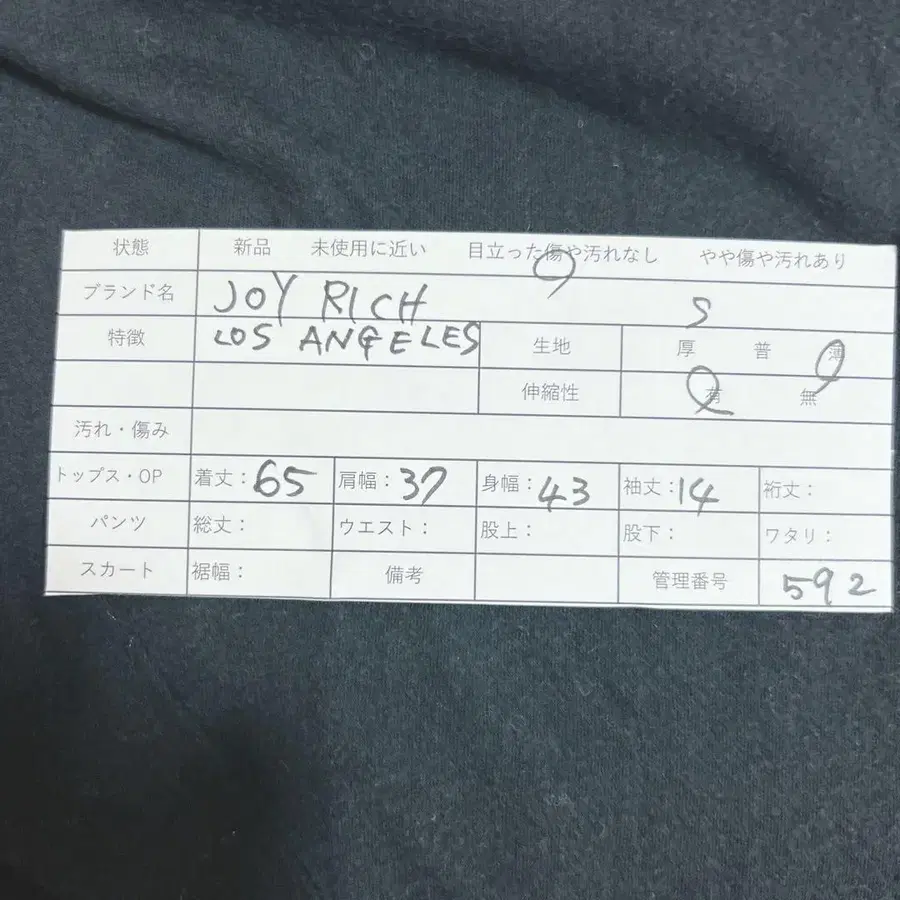 状態 新品 未使用に近い 目立った傷や汚れなし やや傷や汚れあり
ブランド名 JOY RICH S
特徴 LOS ANGELES 生地 厚 普 薄
伸縮性 有 無
汚れ・傷み
トップス・OP 着丈：65 肩幅：37 身幅：43 袖丈：14 裄丈：
パンツ 総丈： ウエスト： 股上： 股下： ワタリ：
スカート 裾幅： 備考 管理番号 592